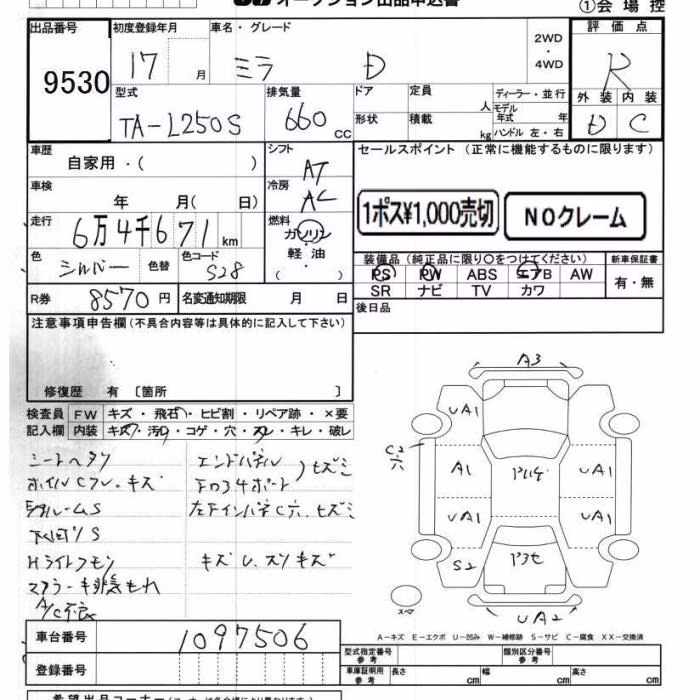 オークション出品申込書
①会場控
出品番号 初度登録年月 車名・グレード 評価点
9530 17 月 ミラ D 2WD・4WD R
型式 排気量 ドア 定員 ディーラー・並行 外装 内装
TA-L250S 660 cc 形状 積載 人 kg モデル年式 年 ハンドル 左・右 D C
車歴 シフト セールスポイント(正常に機能するものに限ります)
自家用・( ) AT
車検 冷房
年 月( 日) AC 1ポス¥1,000売切 NOクレーム
走行 燃料
6万4千671 km ガソリン
色 色替 色コード 軽油 装備品(純正品に限り○をつけてください) 新車保証書
シルバー S28 ( ) PS PW ABS エアB AW 有・無
SR ナビ TV カワ
R券 8570 円 名変通知期限 月 日 後日品
注意事項申告欄(不具合内容等は具体的に記入して下さい)
修復歴 有 〔箇所 〕
検査員 FW キズ・飛石・ヒビ割・リペア跡・×要
記入欄 内装 キズ・汚れ・コゲ・穴・スレ・キレ・破レ
シートヘタリ エンドパネル
ホイルCフレ・キズ
S
Hライトクモリ キズ U、スリキズ
マフラー排気もれ
A/C不良
A3
UA1
C2
穴
A1 UA1
UA1 UA1
S2
スペ
UA2
A－キズ E－エクボ U－凹み W－補修跡 S－サビ C－腐食 XX－交換済
車台番号 1097506
登録番号
型式指定番号 参考 類別区分番号 参考
車庫証明用 参考 長さ cm 幅 cm 高さ cm